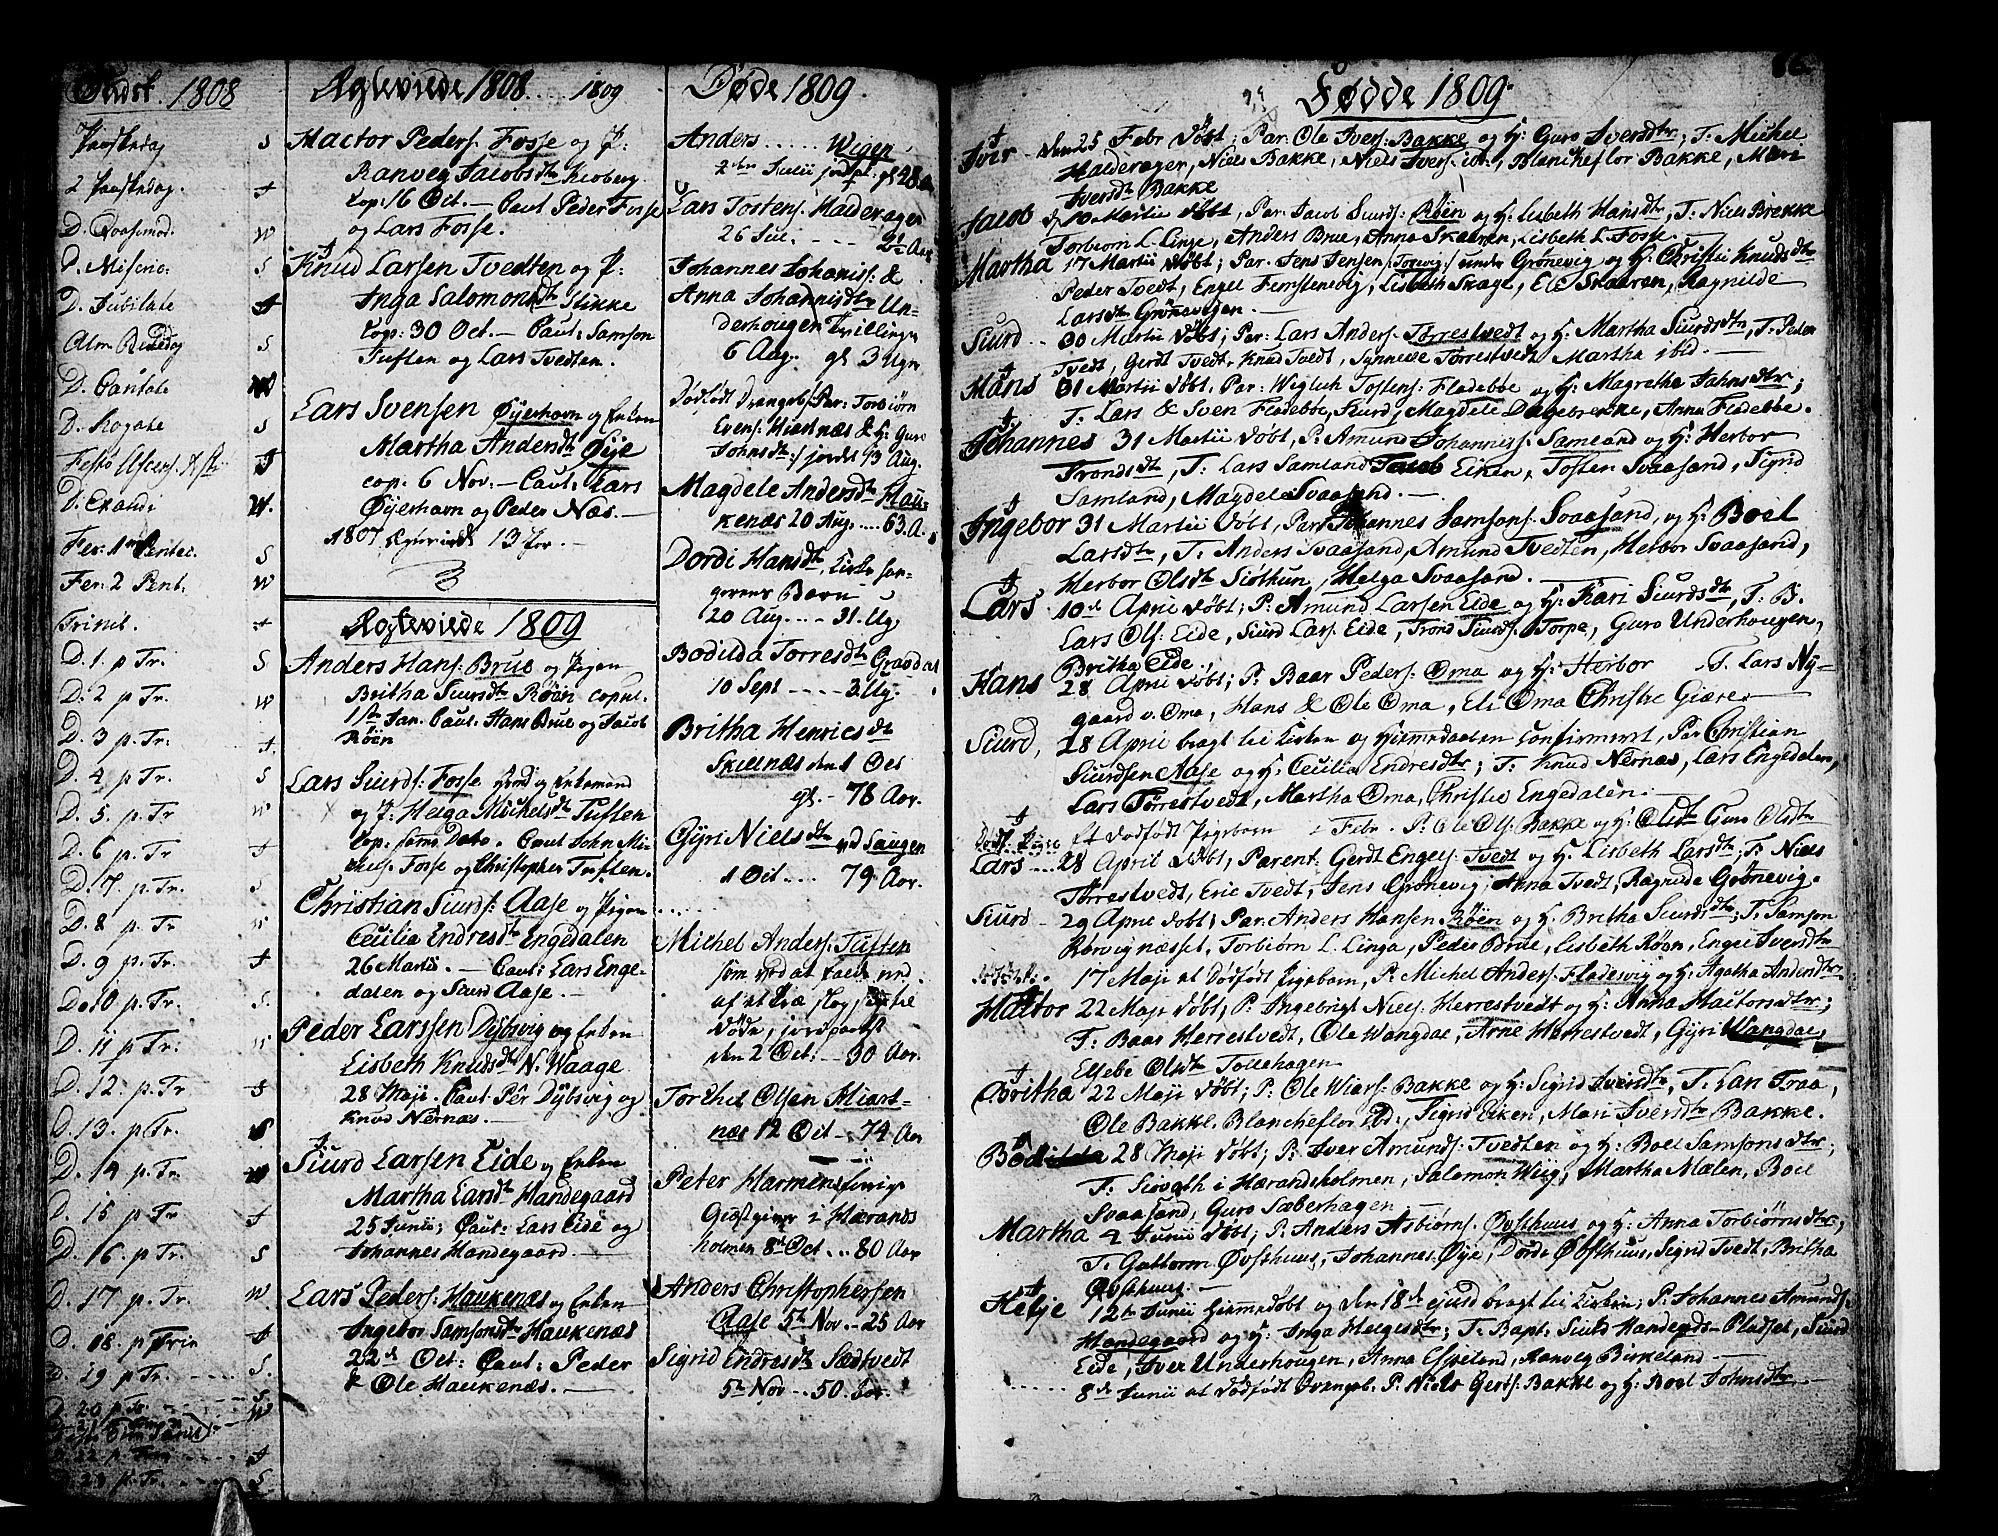 Indsk. 1808
Paaskedag S
2 Paaskedag. J
D. Qvasimod. W
D. Miseric: S
D. Jubilate J
Alm. Bededag S
D. Cantate W
D. Rogate S
Festo Ascens. J
D. Exaudi W.
Fer. 1 Pentec. S
Fer. 2 Pent. W
Trinit. J
D. 1. p Tr. S
D. 2 p Tr. W
D. 3 p. Tr. J
D. 4 p Tr. S
D. 5. p Tr. W
D. 6 p. Tr J
D. 7. p Tr. S
D. 8 p. Tr W
D. 9 p Tr. J
Do. 10 p. Tr. S.
D. 11 p Tr. W
D. 12. p. Tr S
D. 13. p. Tr. S
D. 14 p. Tr. W
D. 15 p Tr. J
D. 16 p Tr. S
D. 17 p. Tr. W
D. 18. p Trin J
D. 19 p. Tr. S.
D. 20 p. Tr. W
D. 22 p. Tr. J
D. 23 p. Tr. S
Ægteviede 1808 1809
Hactor Peders. Fosse og P:
Ranveg Jacobsdtr Kioberg.
Cop. 16 Oct. — Caut. Peder Fosse
og Lars Fosse.
Knud Larsen Tvedten og P:
Inga Salomonsdtr Stikke
Cop: 30 Oct. — Caut: Samson
Tuften og Lars Tvedten.
Lars Svensen Øyerhavn og Enken
Martha Andersdtr Øye
cop. 6 Nov: — Caut: Lars
Øyerhavn og Peder Næs. —
1807 Ægteviede 13 Par. —
Ægteviede 1809
Anders Hans: Brue og Pigen
Britha Siursdtr Røen copul.
1ste Jan. Caut. Hans Brue og Jacob
Røen
Lars Siurds: Fosse Grod og Enkemand
og P: Helga Michelsdtr Tuften
Cop. samme Dato. Caut John Mi-
chels: Fosse og Christopher Tuften.
Christian Siurds: Aase og Pigen
Cecilia Endresdtr Engedalen
26 Martii. — Caut: Lars Enge-
dalen og Siurd Aase. —
Peder Larssen Dybsvig og Enken
Lisbeth Knudsdtr N. Waage
28 Maji. Caut Pêr Dybsvig og
Knud Nernæs. —
Siurd Larsen Eide og Enken
Martha Larsdtr Handegaard
25 Junii; Caut: Lars Eide og
Johannes Handegaard. —
Lars Peders. Haukenæs og Enken
Ingebor Samsonsdtr Haukenæs
22de Oct: Caut: Peder
& Ole Haukenæs. —
Døde 1809.
Anders ..... Wigen
2den Julii jordf. gl 28 Aar
Lars Tostens. Halderager
26 Jul. ... 21 Aar
Johannes Johaniss: &
Anna Johannisdtr Un-
derhougen Tvillinger
6 Aug. gl 3 Ugr
Dødfødt Drengeb. Par: Torbiörn
Evens. Hiertnæs & H: Guro
Johnsdtr: jordet 13 Aug.
Magdele Andersdtr Hau-
kenæs 20 Aug. .... 63. A.
Dordi Hansdtr, Kirkesan-
gerens Barn
20 Aug. .... 31. Ug
Bodilda Torresdtr Gravdal
10 Sept ..... 3 Ug.
Britha Henricsdtr
Skielnæs den 1 Oct
gl. — 78 Aar.
Gyri Nielsdtr ved Saugen
1 Oct .... 79 Aar.
Michel Anders: Tuften
som ved at falde ned
af et Træ slog sig til
Døde, jordpaast
den 2 Oct. — 30 Aar.
Torchel Olsen Hiart-
næs 12 Oct — 74 Aar
Peter Harmens forrige
Giæstgiver i Hærands
holmen 8de Oct ... 80 Aar
Anders Christophersen
Aase 5te Nov. — 25 Aar
Sigrid Endresdtr Sædtvedt
5te Nov ... 50 Aar.
Fødde 1809.
Iver den 25 Febr Døbt; Par. Ole Ivers: Bakke og H: Guro Sversdtr; T. Michel
Halderager, Niels Bakke, Niels Ivers ibd, Blancheflor Bakke, Mari
Iversdtr Bakke
Jacob d 10 Martii døbt, Par. Jacob Siurds: Røen og H: Lisbeth Hansdtr, T: Niels Brekke
Torbiorn L. Linge, Anders Brue, Anna Skaaren, Lisbeth L. Fosse. —
Martha 17 Martii Døbt; Par. Jens Jensen Torvig under Grønevig og H: Christi Knudsdtr
Peder Tvedt, Engel Femstenevig, Lisbeth Skage, Ele Skaaren, Ragnilde
Larsdtr Grönevigen. —
Siurd .. 30 Martii Døbt; Par: Lars Anders. Torrestvedt og H: Martha Siursdtr, T. Peder
Tvedt, Gerdt Tvedt, Knud Tvedt, Synneve Torrestvedt Martha ibid. —
Hans 31 Martii døbt. Par: Wiglich Tostens: Fladebøe og H: Magretha Jahnsdtr;
T: Lars & Sven Fladebøe, Siurd, Magdele Dagebrekke, Anna Fladebøe.
Johannes 31 Martii døbt, P: Amund Johanness. Samland og H: Herbor
Trondsdtr, T: Lars Samland Jacob Eiken, Tosten Svaasand, Sigrid
Samland, Magdele Svaasand. —
Ingebor 31 Martii døbt, Par. Johannes Samsons. Svaasand, og H: Boel
Larsdtr, T: Anders Svaasand, Amund Tvedten, Herbor Svaasand,
Herbor Olsdtr Siothun, Helga Svaasand. —
Lars 10de April Døbt; P: Amund Larsen Eide og H: Kari Siurdsdtr, T: B.
Lars Ols: Eide, Siurd Lars. Eide, Trond Siurds: Torpe, Guro Underhougen,
Britha Eide.
Hans 28 April døbt; P: Baar Peders: Oma og H: Herbor T. Lars Ny-
gaard v. Oma, Hans & Ole Oma, Eli Oma Christie Giære
Siurd, 28 April bragt til Kirken og Hiemmedaaben confirmeret, Par Christian
Siurdsen Aase og H: Cecilia Endresdtr; T: Knud Nernæs, Lars Engedalen,
Lars Torrestvedt, Martha Oma, Christie Engedalen. —
Dødf. Pige Et dødfødt Pigebarn i Febr. P: Ole Ols. Bakke og H: Guro Olsdtr
Lars ... 28 April Døbt, Parent: Gerdt Engels. Tvedt og H. Lisbeth Larsdtr; T: Niels
Torrestvedt, Eric Tvedt, Jens Grönevig, Anna Tvedt, Ragnilde Grønevig.
Siurd 29 April døbt; Par: Anders Hansen Røen og H: Britha Siursdtr; T. Samson
Rørvignæsset, Torbiörn L. Linga, Peder Brue, Lisbeth Røen, Engel Iversdtr
Dødfødt. 17 Maji et Dødfødt Pigebarn, P: Michel Anders: Fladesvig og H: Agatha Andersdtr
Hactor 22 Maji døbt, P: Ingebrigt Niels. Herrestvedt og H: Anna Hactorsdtr;
T: Baar Herrestvedt, Ole Wangdal, Arne Herrestvedt, Gyri Wangdal,
Ellebe Olsdtr Tollehagen
Britha 22 Maji døbt; P: Ole Wiars. Bakke og H: Sigrid Iversdtr, T. Lars Traa,
Ole Bakke. Blancheflor ibd:, Sigrid Eiken, Mari Sversdtr Bakke.
Bodilda 28 Maji døbt; P: Iver Amunds. Tvedten og H: Boel Samsonsdtr;
T: Siovath i Hærandsholmen, Salomon Wiig, Martha Mælen, Boel
Svaasand, Guro Sæberhagen
Martha 4 Junii døbt; P: Anders Asbiörns. Øvsthuus og H: Anna Torbiörnsdtr,
T. Gutborm Øvsthuus, Johannes Øye, Dordi Øvsthuus, Sigrid Tvedt, Britha
Øvsthuus. —
Helje 12te Junii hiemmedøbt og den 18de ejusd bragt til Kirken; P: Johannes Amunds:
Handegaard og H: Inga Helgesdtr; T: Bapt: Siurd Handegds-Pladset, Siurd
Eide, Iver Underhougen, Anna Espeland, Ranveg Birkeland —
..... 8de Junii et dødfødt Drengeb. P: Niels Gerts: Bakke og H: Boel Johnsdtr. —